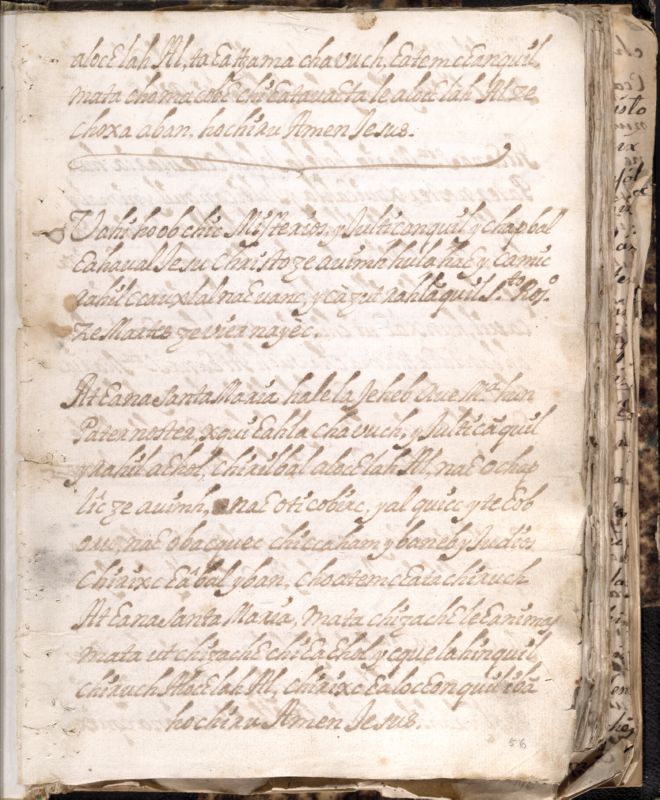 alocɛlah Al, ta ɛattama chavuch, ɛatemcɛanquil
mata ohomacobɛ chiɛatavaɛta le alocɛlah Al ze
choxa aban, hochiau Amen Jesus.
Vahihoob chic Misterios, y Julticanquil y chapbal
ɛahaual Jesu Christo ze auimh hula haɛ y camic
rahil ccauxlal naɛ uanc, y cazut rahlãquil S.to Ros.o
Ze Martes ze viernayec.
At ɛana Santa Maria hale la Jeheb Aue M.a hun
Paternoster, xquiɛahla chavuch, y Julticãquil
y rahilachol, chirilbal alocɛlah Al, naɛ ochup
lic ze auimh, naɛ oticobirc, yalquicc yteɛob
naɛ obacquec chiccaham ybaneb y Judios
Chirixcɛabal yban, choatemcɛata chiruch
At ɛana Santa Maria, mata chizachɛ le ɛanimas
mata ut chizachɛ chiɛaɛhol, ycque lahinquil
chiruch Alocɛlah Al, chirixcɛalocɛanquil ibã
hochiau Amen Jesus.
56